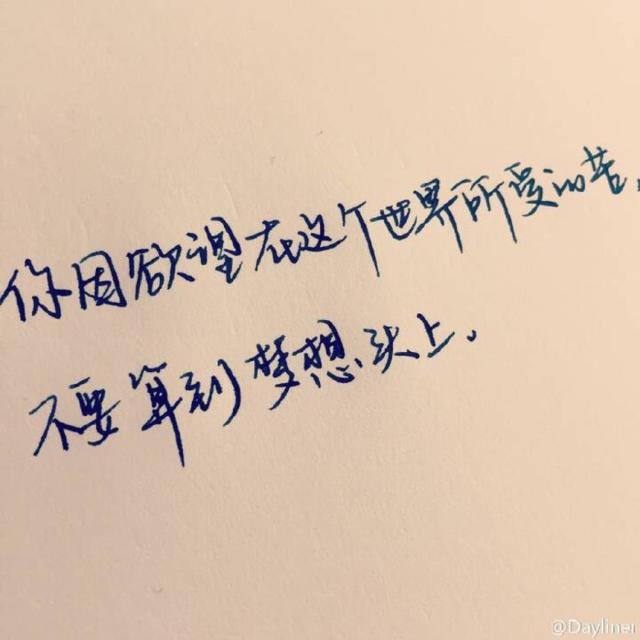 你因欲望在这个世界所受的苦，
不要算到梦想头上。
@Dayliner